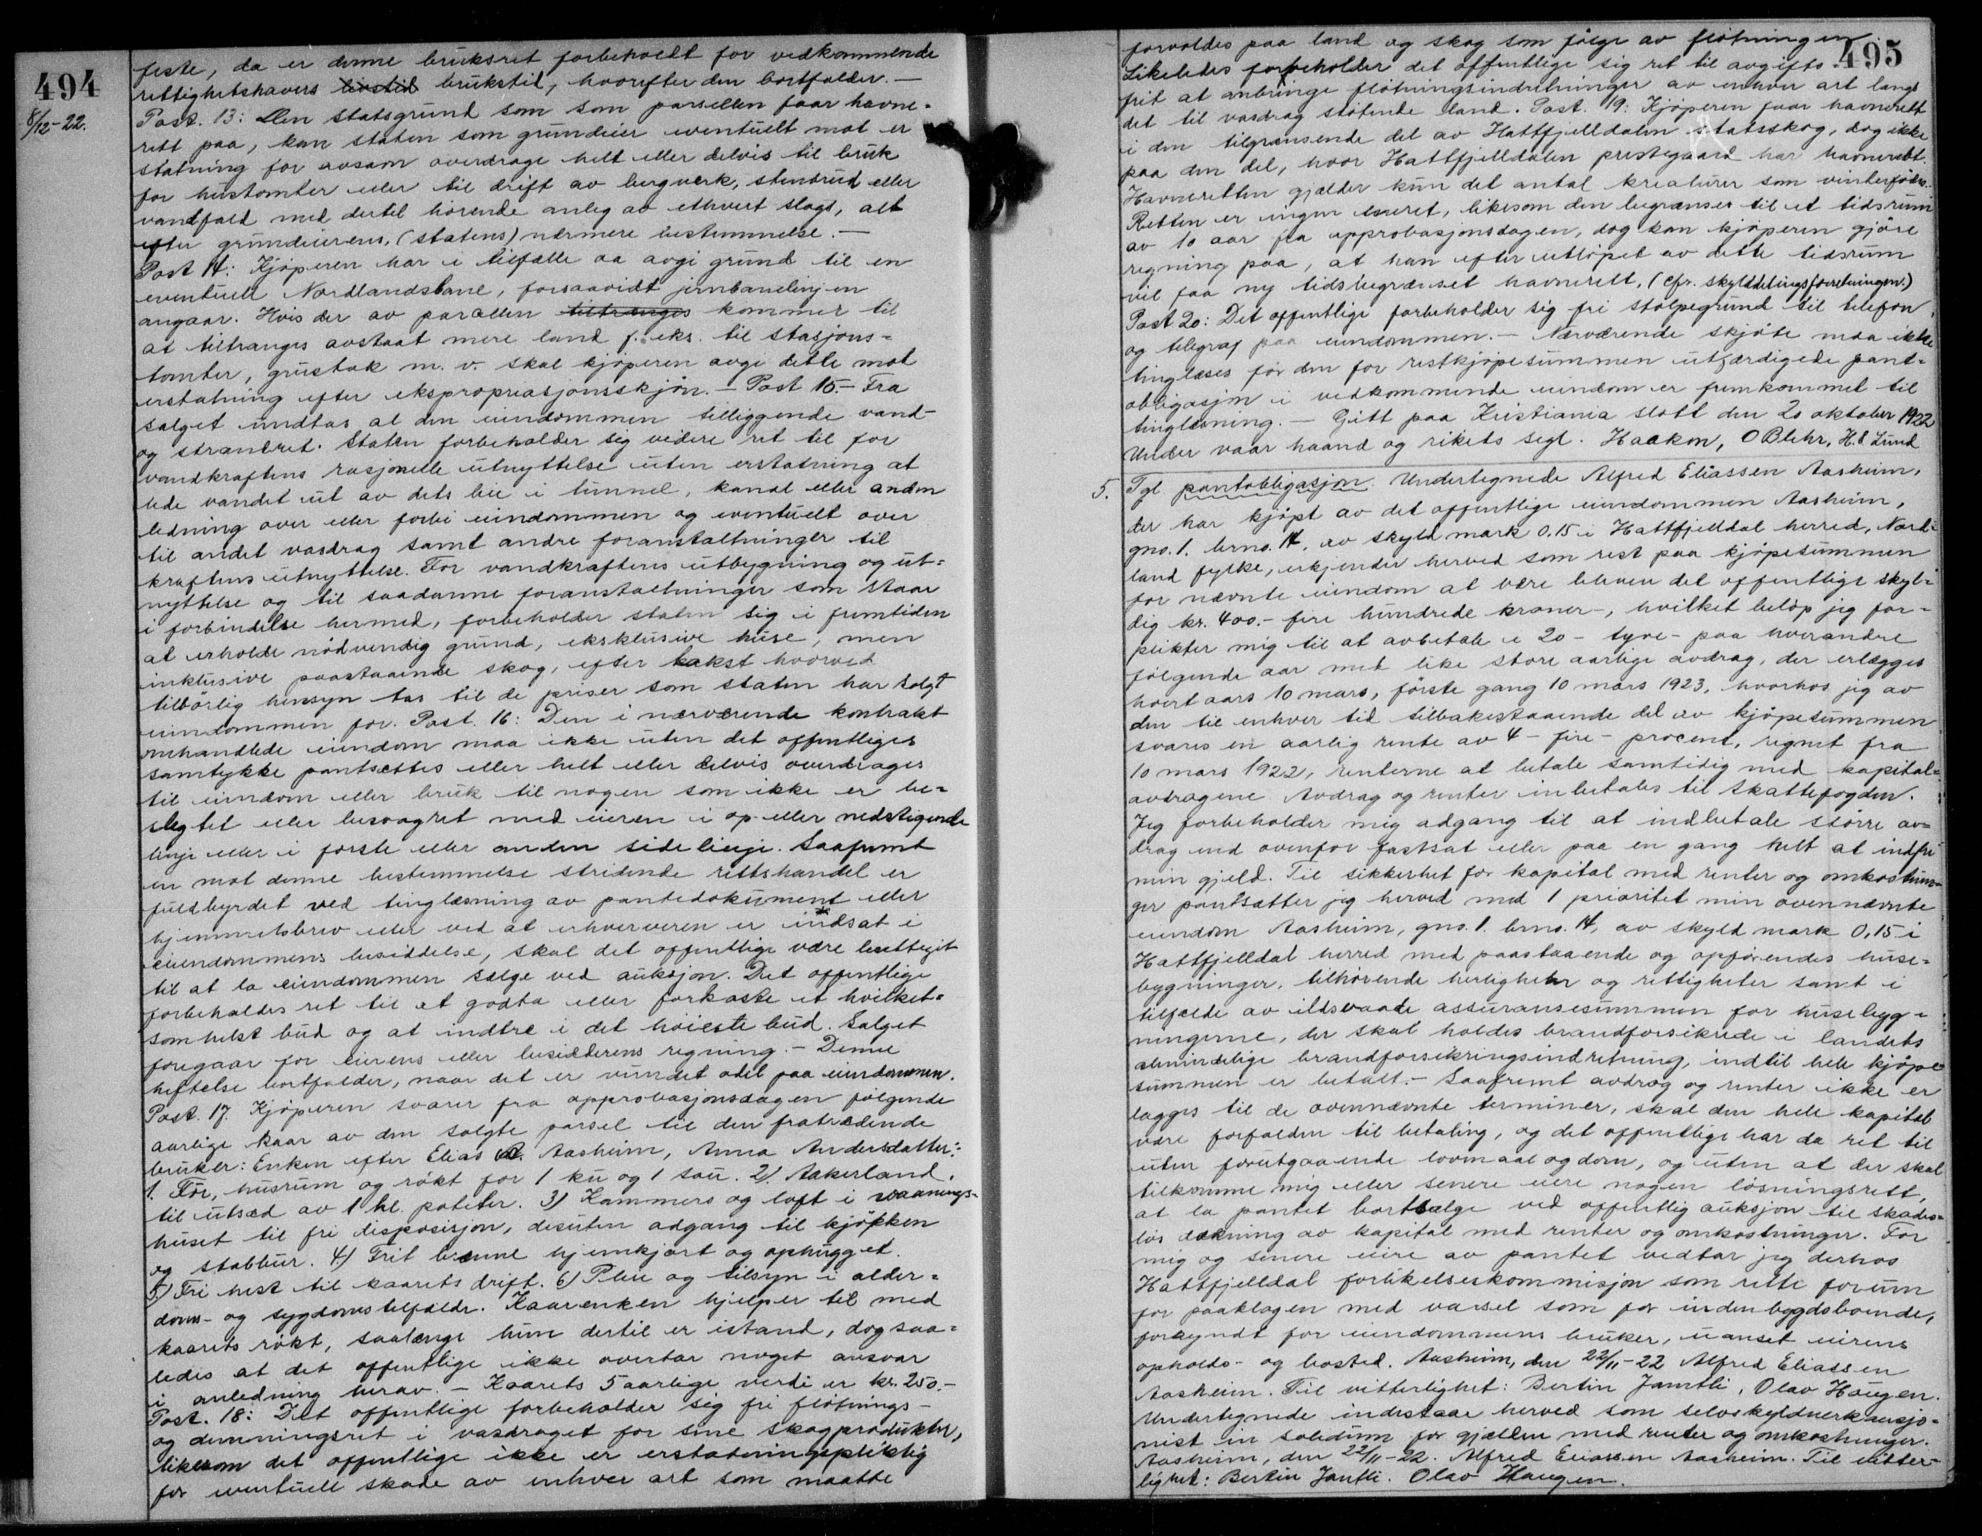 494
8/12-22.
feste, da er denne bruksret forbeholdt for vedkommende
rettighetshavers livstid brukstid, hvorefter den bortfalder.—
Post. 13: Den statsgrund som som parsellen faar havne-
rett paa, kan staten som grundeier eventuelt mot er
statning for avsavn overdrage helt eller delvis til bruk
for hustomter eller til drift av bergverk, stenbrud eller
vandfald med dertil hørende anlæg av ethvert slags, alt
efter grundeierens, (statens) nærmere bestemmelse.—
Post 14: Kjøperen har i tilfælle aa avgi grund til en
eventuell Nordlandsbane, forsaavidt jernbanelinjen
angaar. Hvis der av parcellen tiltrænges kommer til
at tiltrænges avstaat mere land f. eks. til stasjons-
tomter, grustak m. v. skal kjøperen avgi dette mot
erstatning efter ekspropriasjonsskjøn.— Post 15.— Fra
salget undtas al den eiendommen tilliggende vand-
og strandret. Staten forbeholder sig videre ret til for
vandkraftens rasjonelle utnyttelse uten erstatning at
lede vandet ut av dets leie i tunnel, kanal eller anden
ledning over eller forbi eiendommen og eventuelt over
til andet vasdrag samt andre foranstaltninger til
kraftens utnyttelse. For vandkraftens utbygning og ut-
nyttelse og til saadanne foranstaltninger som staar
i forbindelse hermed, forbeholder staten sig i fremtiden
at erholde nödvendig grund, eksklusive huse, men
inklusive paastaaende skog, efter takst hvorved
tilbörlig hensyn tas til de priser som staten har solgt
eiendommen for. Post. 16: Den i nærværende kontrakt
omhandlede eiendom maa ikke uten det offentliges
samtykke pantsættes eller helt eller delvis overdrages
til eiendom eller bruk til nogen som ikke er be-
slegtet eller besvogret med eieren i op eller nedstigende
linje eller i første eller anden sidelinje. Saafremt
en mot denne bestemmelse stridende rettshandel er
fuldbyrdet ved tinglæsning av pantedokument eller
hjemmelsbrev eller ved at erhververen er indsat i
eiendommens besiddelse, skal det offentlige være berettiget
til at la eiendommen sælge ved auksjon. Det offentlige
forbeholdes ret til at godta eller forkaste et hvilket-
somhelst bud og at indtre i det høieste bud. Salget
foregaar for eierens eller besidderens regning.— Denne
heftelse bortfalder, naar det er vundet odel paa eiendommen.
Post. 17. Kjøperen svarer fra approbasjonsdagen følgende
aarlige kaar av den solgte parsel til den fratrædende
bruker: Enken efter Elias A. Aasheim, Anna Andersdatter:
1. Fôr, husrum og røkt for 1 ku og 1 sau. 2) Aakerland
til utsæd av 1 hl. poteter. 3) Kammers og loft i vaanings-
huset til fri disposisjon, desuten adgang til kjøkken
og stabbur. 4) Frit brænne hjemkjørt og ophugget.
5) Fri hest til kaarets drift. 6) Pleie og tilsyn i alder-
doms- og sygdomstilfælde. Kaarenken hjelper til med
kaarets røkt, saalænge hun dertil er istand, dog saa-
ledes at det offentlige ikke overtar noget ansvar
i anledning herav.— Kaarets 5aarlige verdi er kr. 250.—
Post. 18: Det offentlige forbeholder sig fri fløtnings-
og demningsret i vasdraget for sine skogprodukter,
likesom det offentlige ikke er erstatningspliktig
for eventuell skade av enhver art som maatte
495
forvoldes paa land og skog som følge av fløtningen
Likeledes forbeholder det offentlige sig ret til avgifts-
frit at anbringe fløtningsindretninger av enhver art langs
det til vasdrag støtende land. Post. 19: Kjøperen faar havnerett
i den tilgrænsende del av Hattfjelldalen statsskog, dog ikke
paa den del, hvor Hattfjelldalen prestegaard har havnerett.
Havneretten gjælder kun det antal kreaturer som vinterfødes.
Retten er ingen eneret, likesom den begrænses til et tidsrum
av 10 aar fra approbasjonsdagen, dog kan kjøperen gjøre
regning paa, at han efter utløpet av dette tidsrum
vil faa ny tidsbegrænset havnerett, (cfr. skylddelingsforretningen.)
Post 20: Det offentlige forbeholder sig fri stolpegrund til telefon
og telegraf paa eiendommen.— Nærværende skjøte maa ikke
tinglæses før den for restkjøpesummen utfærdigede pant-
obligasjon i vedkommende eiendom er fremkommet til
tinglæsning.— Gitt paa Kristiania slott den 20 oktober 1922
Under vaar haand og rikets segl. Haakon, O Blehr, H. E Lund
5. Tgl. pantobligasjon. Undertegnede Alfred Eliassen Aasheim,
der har kjøpt av det offentlige eiendommen Aasheim,
gno. 1. brno. 14, av skyld mark 0.15 i Hattfjelldal herred, Nord-
land fylke, erkjender herved som rest paa kjøpesummen
for nævnte eiendom at være bleven det offentlige skyl-
dig kr. 400.— fire hundrede kroner—, hvilket beløp jeg for-
plikter mig til at avbetale i 20— tyve— paa hverandre
følgende aar med like store aarlige avdrag, der erlægges
hvert aars 10 mars, første gang 10 mars 1923, hvorhos jeg av
den til enhver tid tilbakestaaende del av kjøpesummen
svarer en aarlig rente av 4— fire— procent, regnet fra
10 mars 1922, renterne at betale samtidig med kapital-
avdragene. Avdrag og renter inbetales til skattefogden.
Jeg forbeholder mig adgang til at indbetale større av-
drag end ovenfor fastsat eller paa en gang helt at indfri
min gjeld. Til sikkerhet for kapital med renter og omkostnin-
ger pantsætter jeg herved med 1 prioritet min ovennævnte
eiendom Aasheim, gno. 1. brno. 14, av skyld mark 0,15 i
Hattfjelldal herred med paastaaende og opførendes huse-
bygninger, tilhørende herligheter og rettigheter samt i
tilfælde av ildsvaade assuransesummen for husebyg-
ningerne, der skal holdes brandforsikrede i landets
almindelige brandforsikringsindretning, indtil hele kjøpe
summen er betalt.— Saafremt avdrag og renter ikke er
lægges til de ovennævnte terminer, skal den hele kapital
være forfalden til betaling, og det offentlige har da ret til
uten forutgaaende lovmaal og dom, og uten at der skal
tilkomme mig eller senere eiere nogen løsningsrett,
at la pantet bortsælge ved offentlig auksjon til skades-
løs dækning av kapital med renter og omkostninger. For
mig og senere eiere av pantet vedtar jeg derhos
Hattfjelldal forlikelseskommisjon som rette forum
for paaklagen med varsel som for indenbygdsboende,
forkyndt for eiendommens bruker, uanset eierens
opholds- og bosted. Aasheim, den 22/11-22 Alfred Eliassen
Aasheim. Til vitterlighet: Bertin Jamtli, Olav Haugen.
Undertegnede indestaar herved som selvskyldnerkausjo-
nist in solidum for gjælden med renter og omkostninger.
Aasheim, den 22/11-22. Alfred Eliassen Aasheim. Til vitter-
lighet: Bertin Jamtli. Olav Haugen.